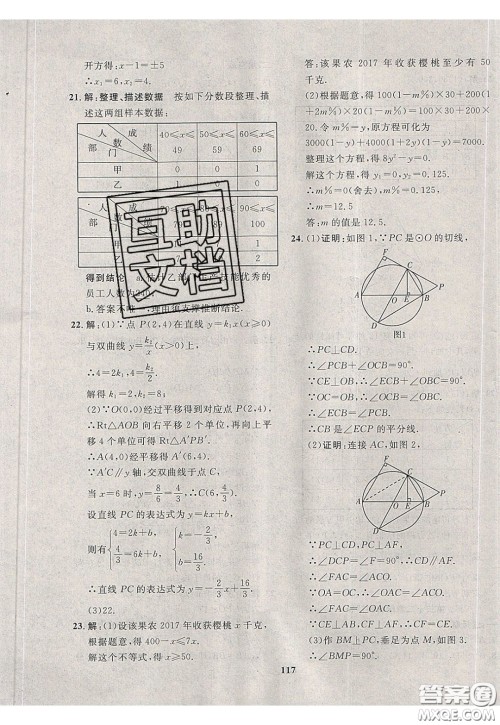 开方得:x-1=±5
∴x₁=6,x₂=4.
21.解:整理、描述数据 按如下分数段整理、描
述这两组样本数据:
成绩 人数 部门 40≤x≤49 50≤x≤59 60≤x≤69
甲 0 0 1
乙 1 0 0
x≤ 80≤x≤89 90≤x≤100
得到结论
员工人数为240;
b.答案不唯一,理由须支撑推断结论.
22.解:(1)∵点 P(2,4)在直线 y=k₁x(x≥0)上,
与双曲线 y=k₂/x(x>0)上,
∴4=2k₁,4=k₂/2
解得 k₁=2,k₂=8;
(2)∵O(0,0)经过平移得到对应点 P(2,4),
∴Rt△AOB 向右平移 2 个单位,再向上平
移 4 个单位可得 Rt△A′PB′.
∴A(4,0)经过平移得到 A′(6,4).
∵A′C∥y 轴,交双曲线于点 C,
当 x=6 时,y=8/6=4/3,∴C(6,4/3)
设直线 PC 的表达式为 y=kx+b,
则有{4=2k+b, 4/3=6k+b {k=-2/3, b=16/3.
∴直线 PC 的表达式为 y=-2/3x+16/3.
(3)22.
23.解:(1)设该果农 2017 年收获樱桃 x 千克,
根据题意,得 400-x≤7x.
解这个不等式,得 x≥50.
答:该果农 2017 年收获樱桃至少有 50
千克.
(2)根据题意,得 100(1-m%)×30+200
(1+2m%)×20(1-m%)=100×30+200×
20.令 m%=y,原方程可化为
3000(1-y)+4000(1+2y)(1-y)=7000.
整理这个方程,得 8y²-y=0.
解这个方程,得 y₁=0,y₂=0.125.
∴m%=0(舍去),m%=0.125,
∴m=12.5.
答:m 的值是 12.5.
24.(1)证明:如图 1,∵PC 是⊙O 的切线,
F C A O E B P D
图1
∴PC⊥CD.
∴∠PCB+∠OCB=90°.
∵CE⊥AB,∴∠ECB+∠OBC=90°.
∵OC=OB,∴∠OCB=∠OBC.
∴∠PCB=∠ECB.
∴CB 是∠ECP 的平分线.
(2)证明:连接 AC,如图 2,
F C A O E B P D
∵PC⊥AF,∴CD∥AF.
∴∠DCP=∠PFA=90°.
∴∠FAC=∠ACD=∠CAO.
∵CF⊥AF,CE⊥AB,∴CF=CE.
(3)作 BM⊥PC,垂足为点 M,如图 3.
∴∠BMP=90°.
117
互助文档
答案圈
MXQE.COM